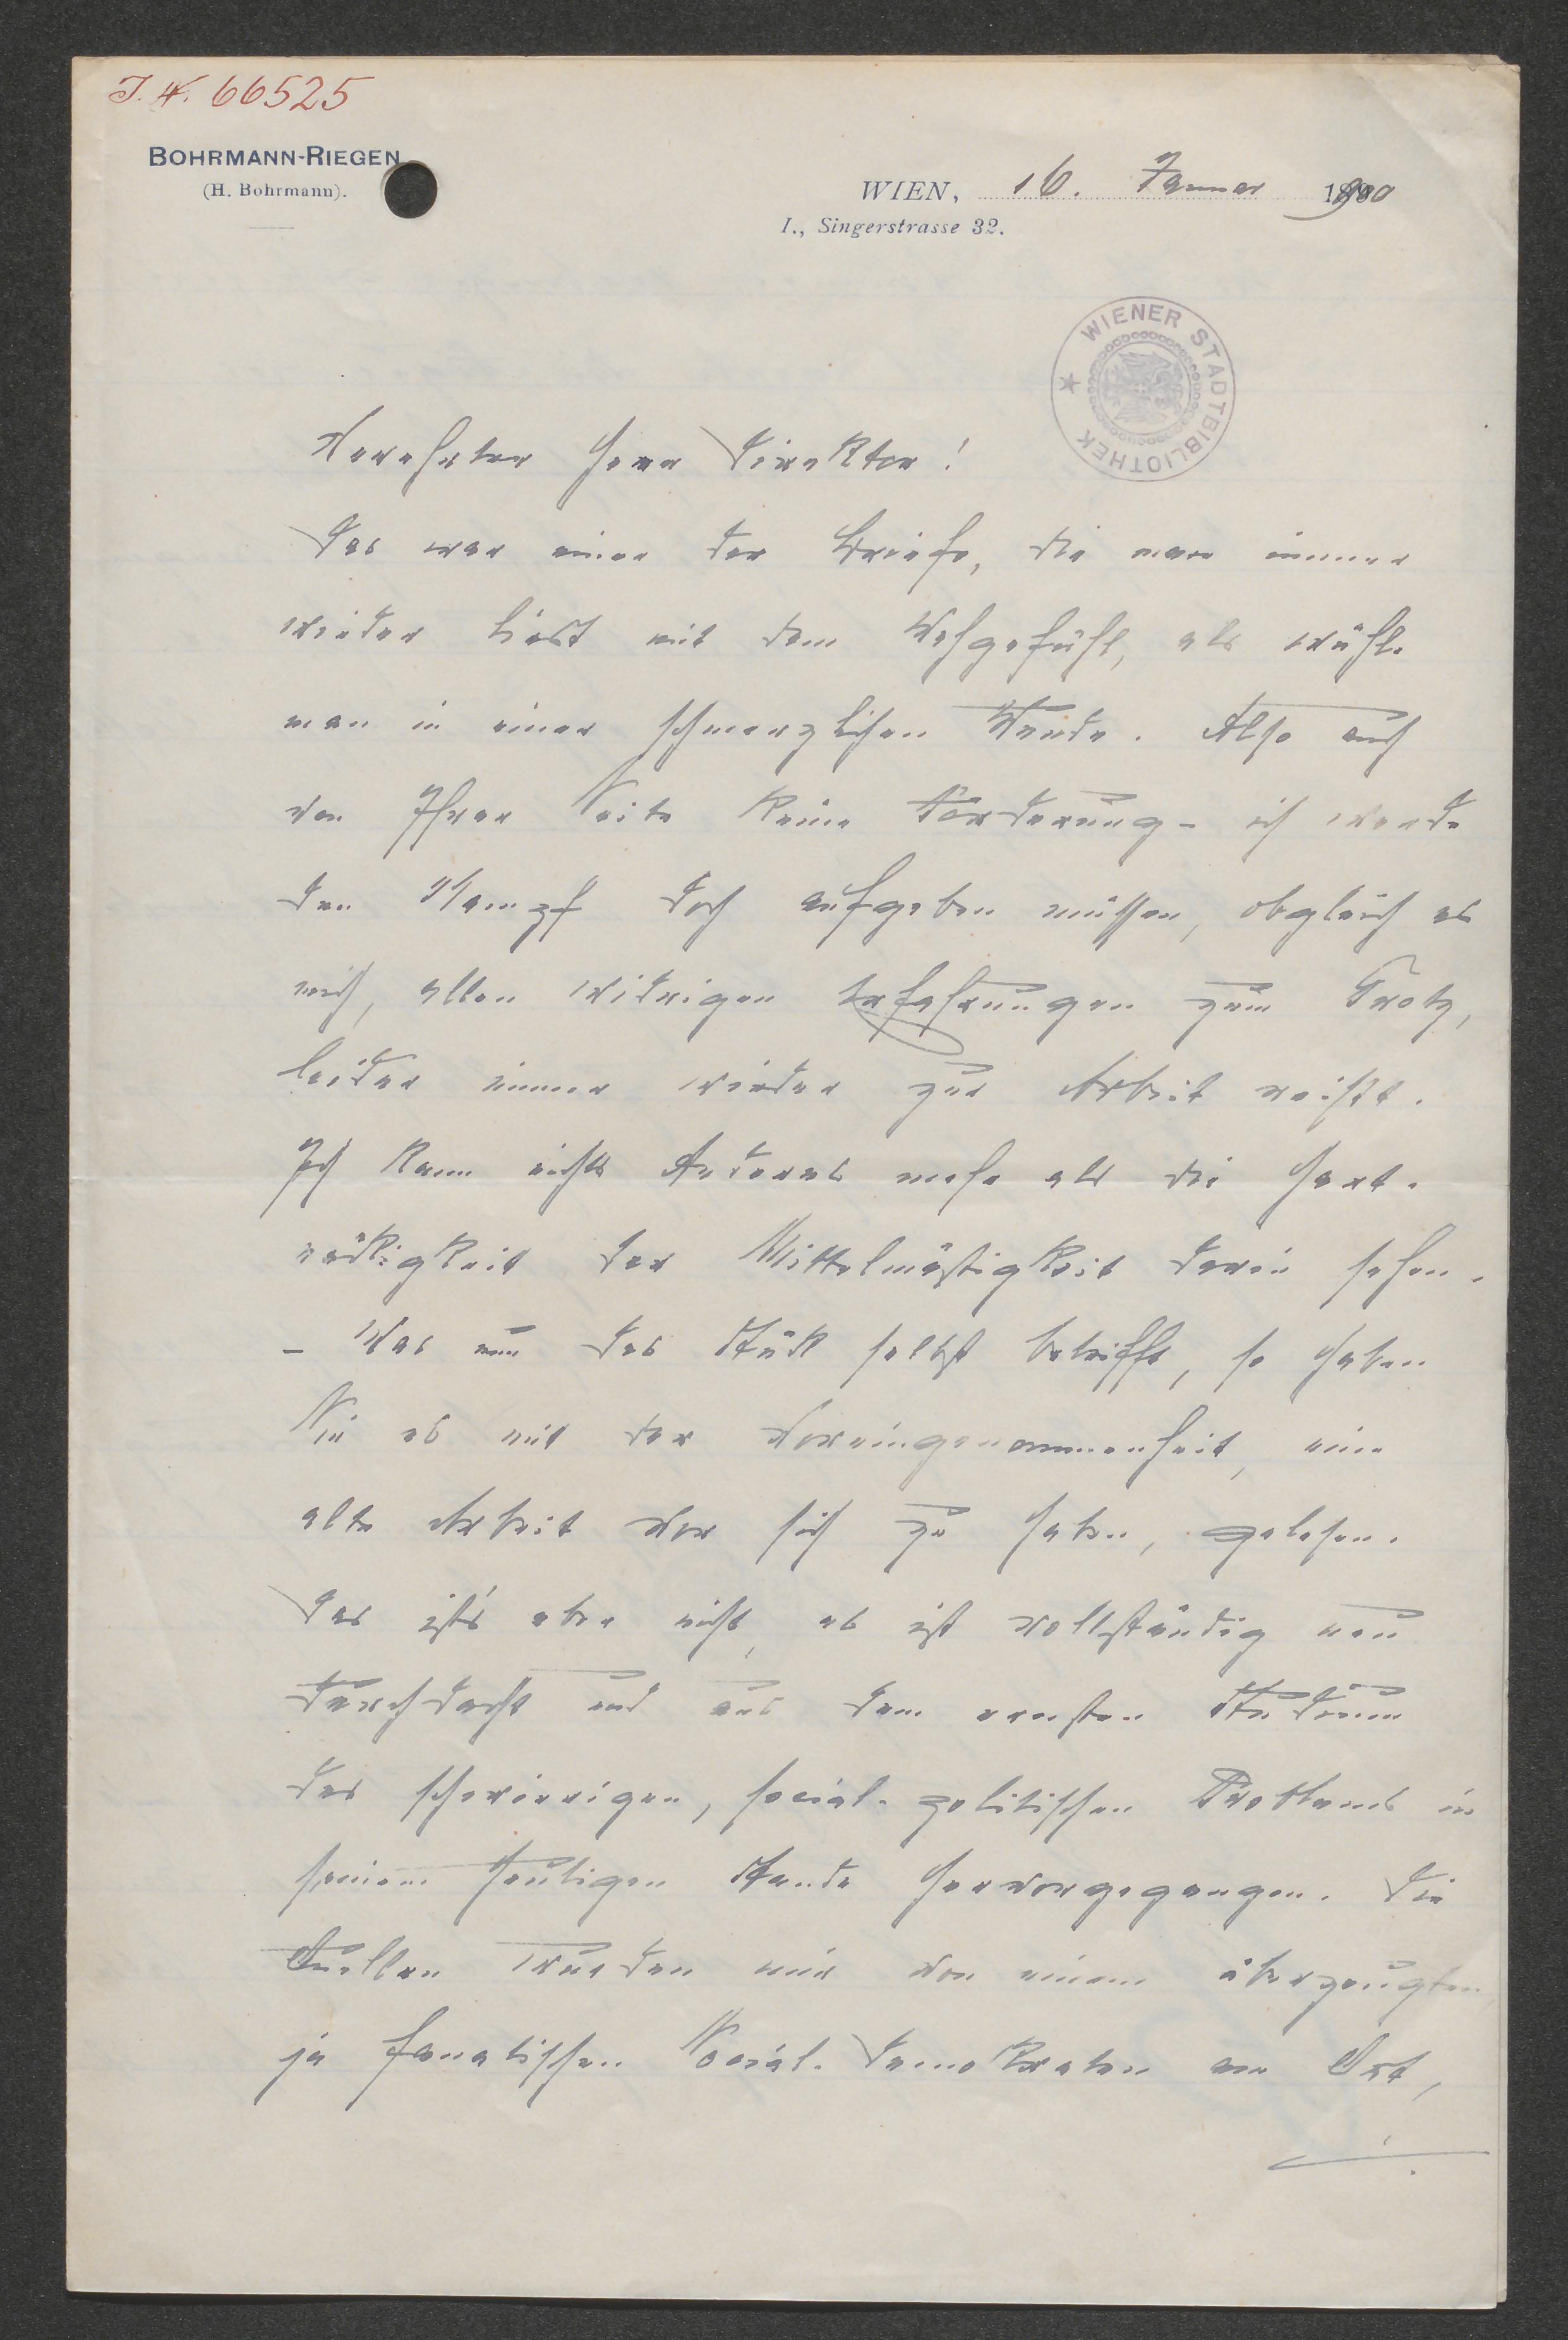 J. N. 66525
BOHRMANN-RIEGEN
(H. Bohrmann).
WIEN, 16. Januar 1900
I., Singerstrasse 32.
WIENER STADTBIBLIOTHEK
Verehrter Herr Direktor!
Das war einer der Briefe, die man immer
wieder liest mit dem Wehgefühl, als wühle
man in einer schmerzlichen Wunde. Also auch
von Ihrer Seite keine Förderung – ich werde
den Kampf doch aufgeben müssen, obgleich es
mich, allen widrigen Erfahrungen zum Trotz,
leider immer wieder zur Arbeit reißt.
Ich kann nichts Anderes mehr als die Hart-
näckigkeit der Mittelmäßigkeit darin sehen.
– Was nun das Stück selbst betrifft, so haben
Sie es mit der Voreingenommenheit, eine
alte Arbeit vor sich zu haben, gelesen.
Das ist's aber nicht, es ist vollständig neu
durchdacht und aus dem ernsten Studium
des schwierigen, social-politischen Problems in
seinem heutigen Stande hervorgegangen. Die
Quellen wurden mir von einem überzeugten
ja fanatischen Social-Demokraten an Ort,